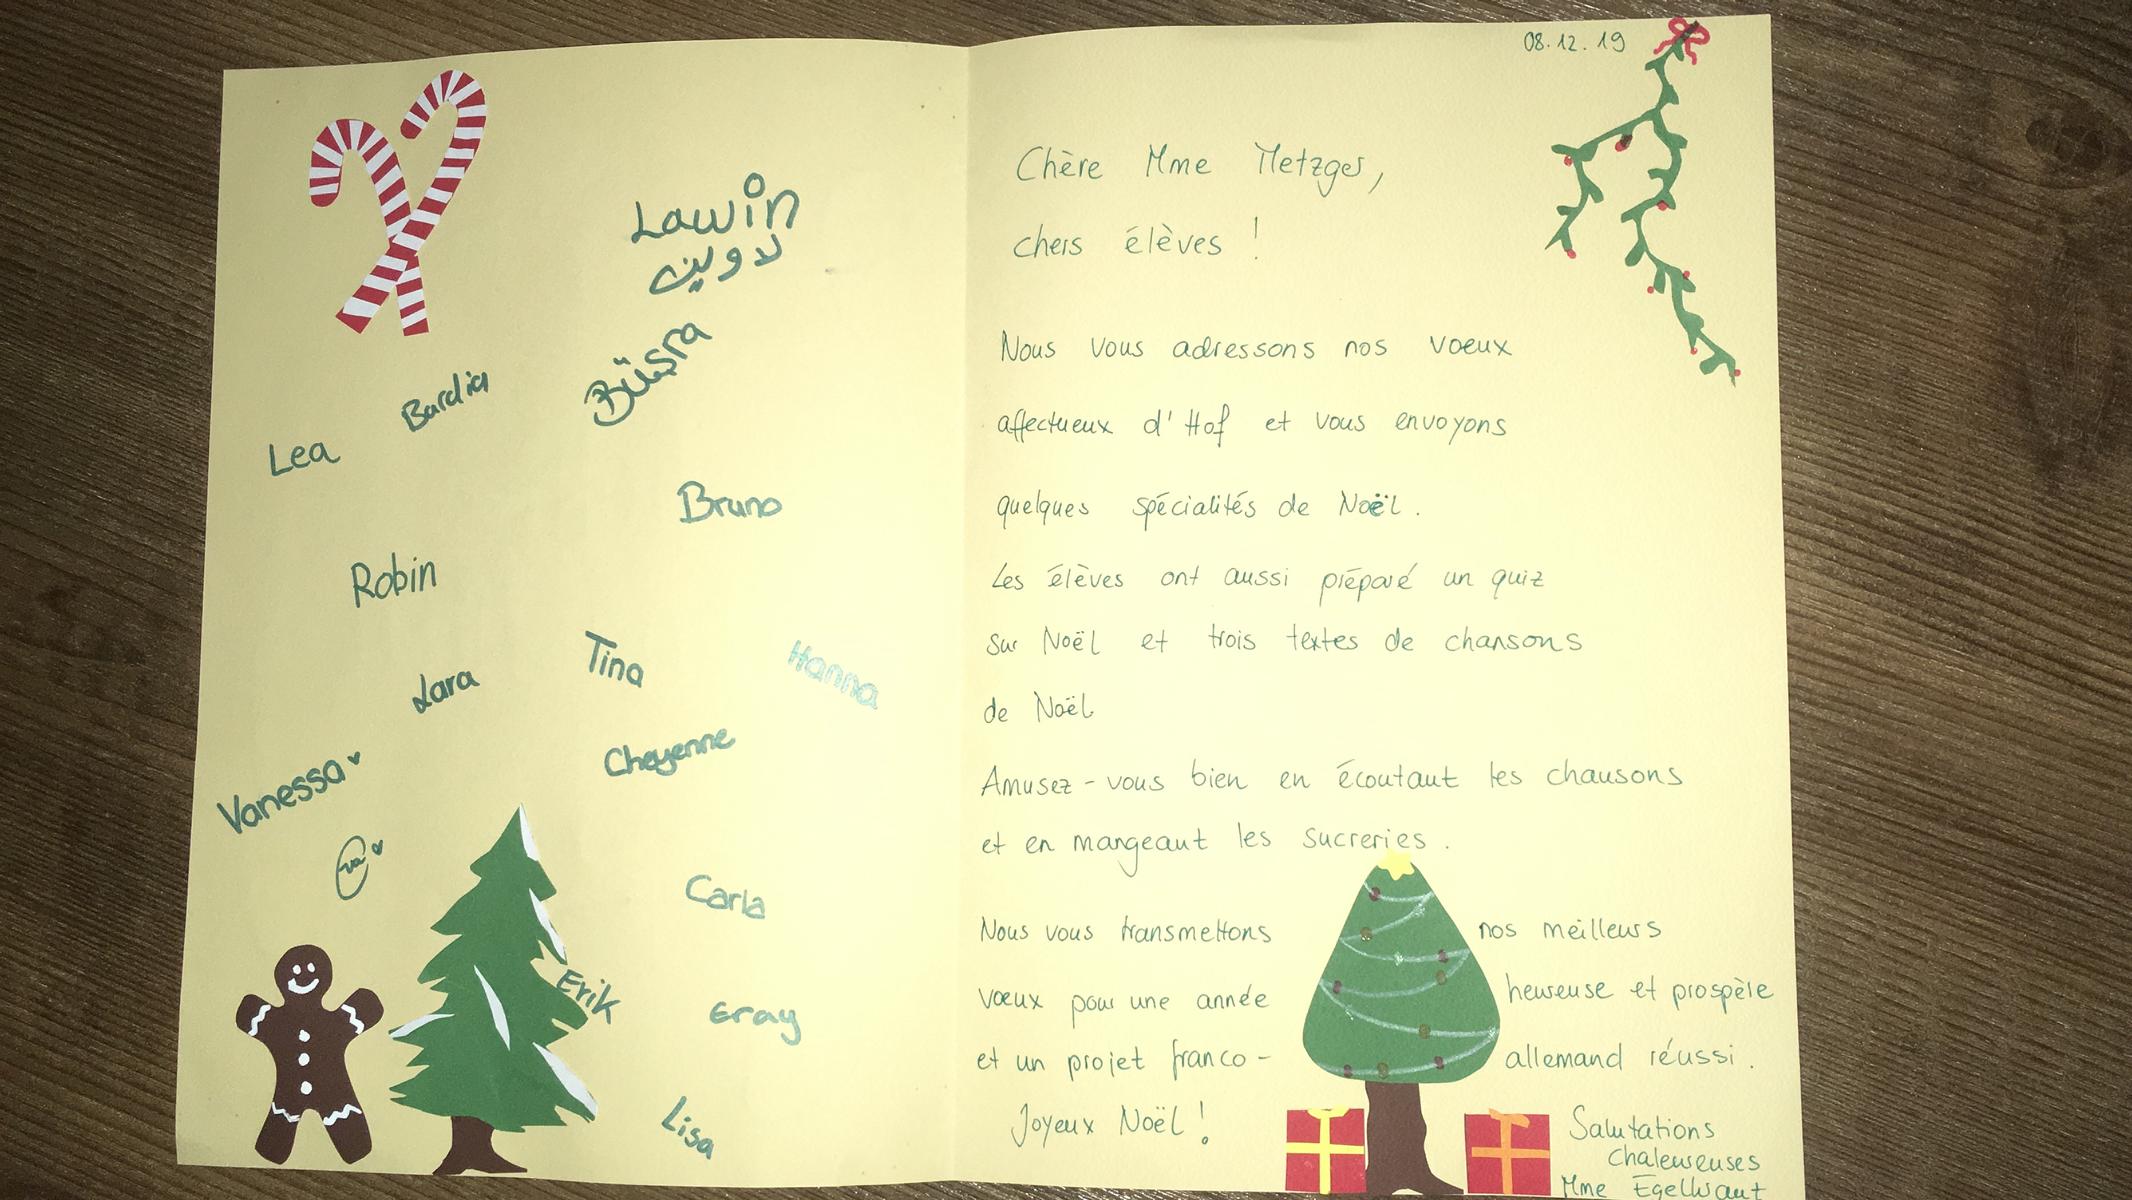 Lawin
لاوين
Büsra
Bardia
Lea
Bruno
Robin
Tina
Hanna
Lara
Cheyenne
Vanessa
Carla
Erik
Eray
Lisa
08.12.19
Chère Mme Metzger,
chers élèves !
Nous vous adressons nos voeux
affectueux d'Hof et vous envoyons
quelques spécialités de Noël.
Les élèves ont aussi préparé un quiz
sur Noël et trois textes de chansons
de Noël
Amusez-vous bien en écoutant les chansons
et en mangeant les sucreries.
Nous vous transmettons nos meilleurs
vœux pour une année heureuse et prospère
et un projet franco-allemand réussi.
Joyeux Noël !
Salutations
chaleureuses
Mme